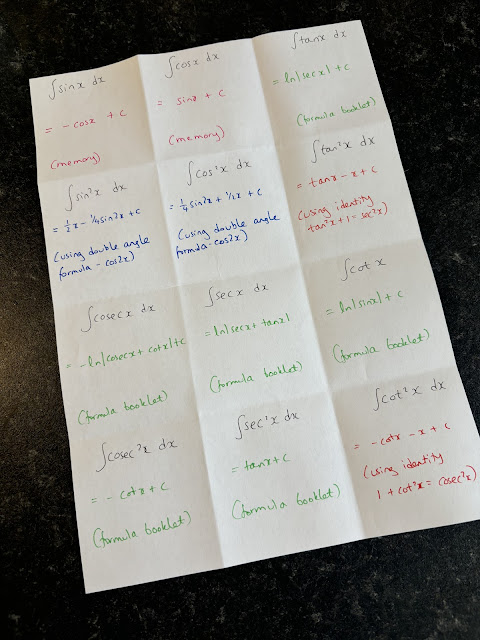 ∫sinx dx
= -cosx + c
(memory)
∫cosx dx
= sinx + c
(memory)
∫tanx dx
= ln|secx| + c
(formula booklet)
∫sin²x dx
= 1/2x - 1/4sin2x + c
(using double angle
formula - cos2x)
∫cos²x dx
= 1/4sin2x + 1/2x + c
(using double angle
formula - cos2x)
∫tan²x dx
= tanx - x + c
(using identity
tan²x + 1 = sec²x)
∫cosecx dx
= -ln|cosecx + cotx| + c
(formula booklet)
∫secx dx
= ln|secx + tanx|
(formula booklet)
∫cotx
= ln|sinx| + c
(formula booklet)
∫cosec²x dx
= -cotx + c
(formula booklet)
∫sec²x dx
= tanx + c
(formula booklet)
∫cot²x dx
= -cotx - x + c
(using identity
1 + cot²x = cosec²x)